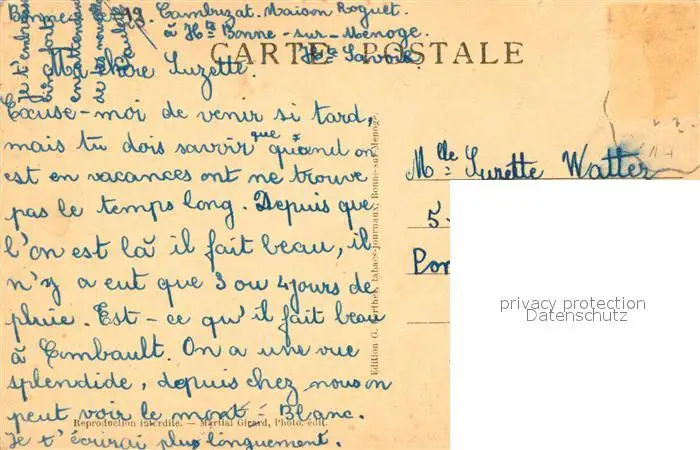 Cambuzat. Maison Roguet.
à Hte Bonne-sur-Menoge.
Hte Savoie.
CARTE POSTALE
Ma chère Suzette.
Excuse-moi de venir si tard,
mais tu dois savoir que quand on
est en vacances ont ne trouve
pas le temps long. Depuis que
l'on est là il fait beau, il
n'y a eut que 3 ou 4 jours de
pluie. Est-ce qu'il fait beau
à Combault. On a une vue
splendide, depuis chez nous on
peut voir le mont-Blanc.
Je t'écrirai plus longuement.
je t'embrasse
bien fort
en attendant
de tes nouvelles
Paulette
Reproduction interdite. — Martial Girard, Photo. édit.
Edition G. Berthet, tabacs-journaux, Bonne-sur-Menoge
Mlle Suzette Watter
5
Pon
privacy protection
Datenschutz